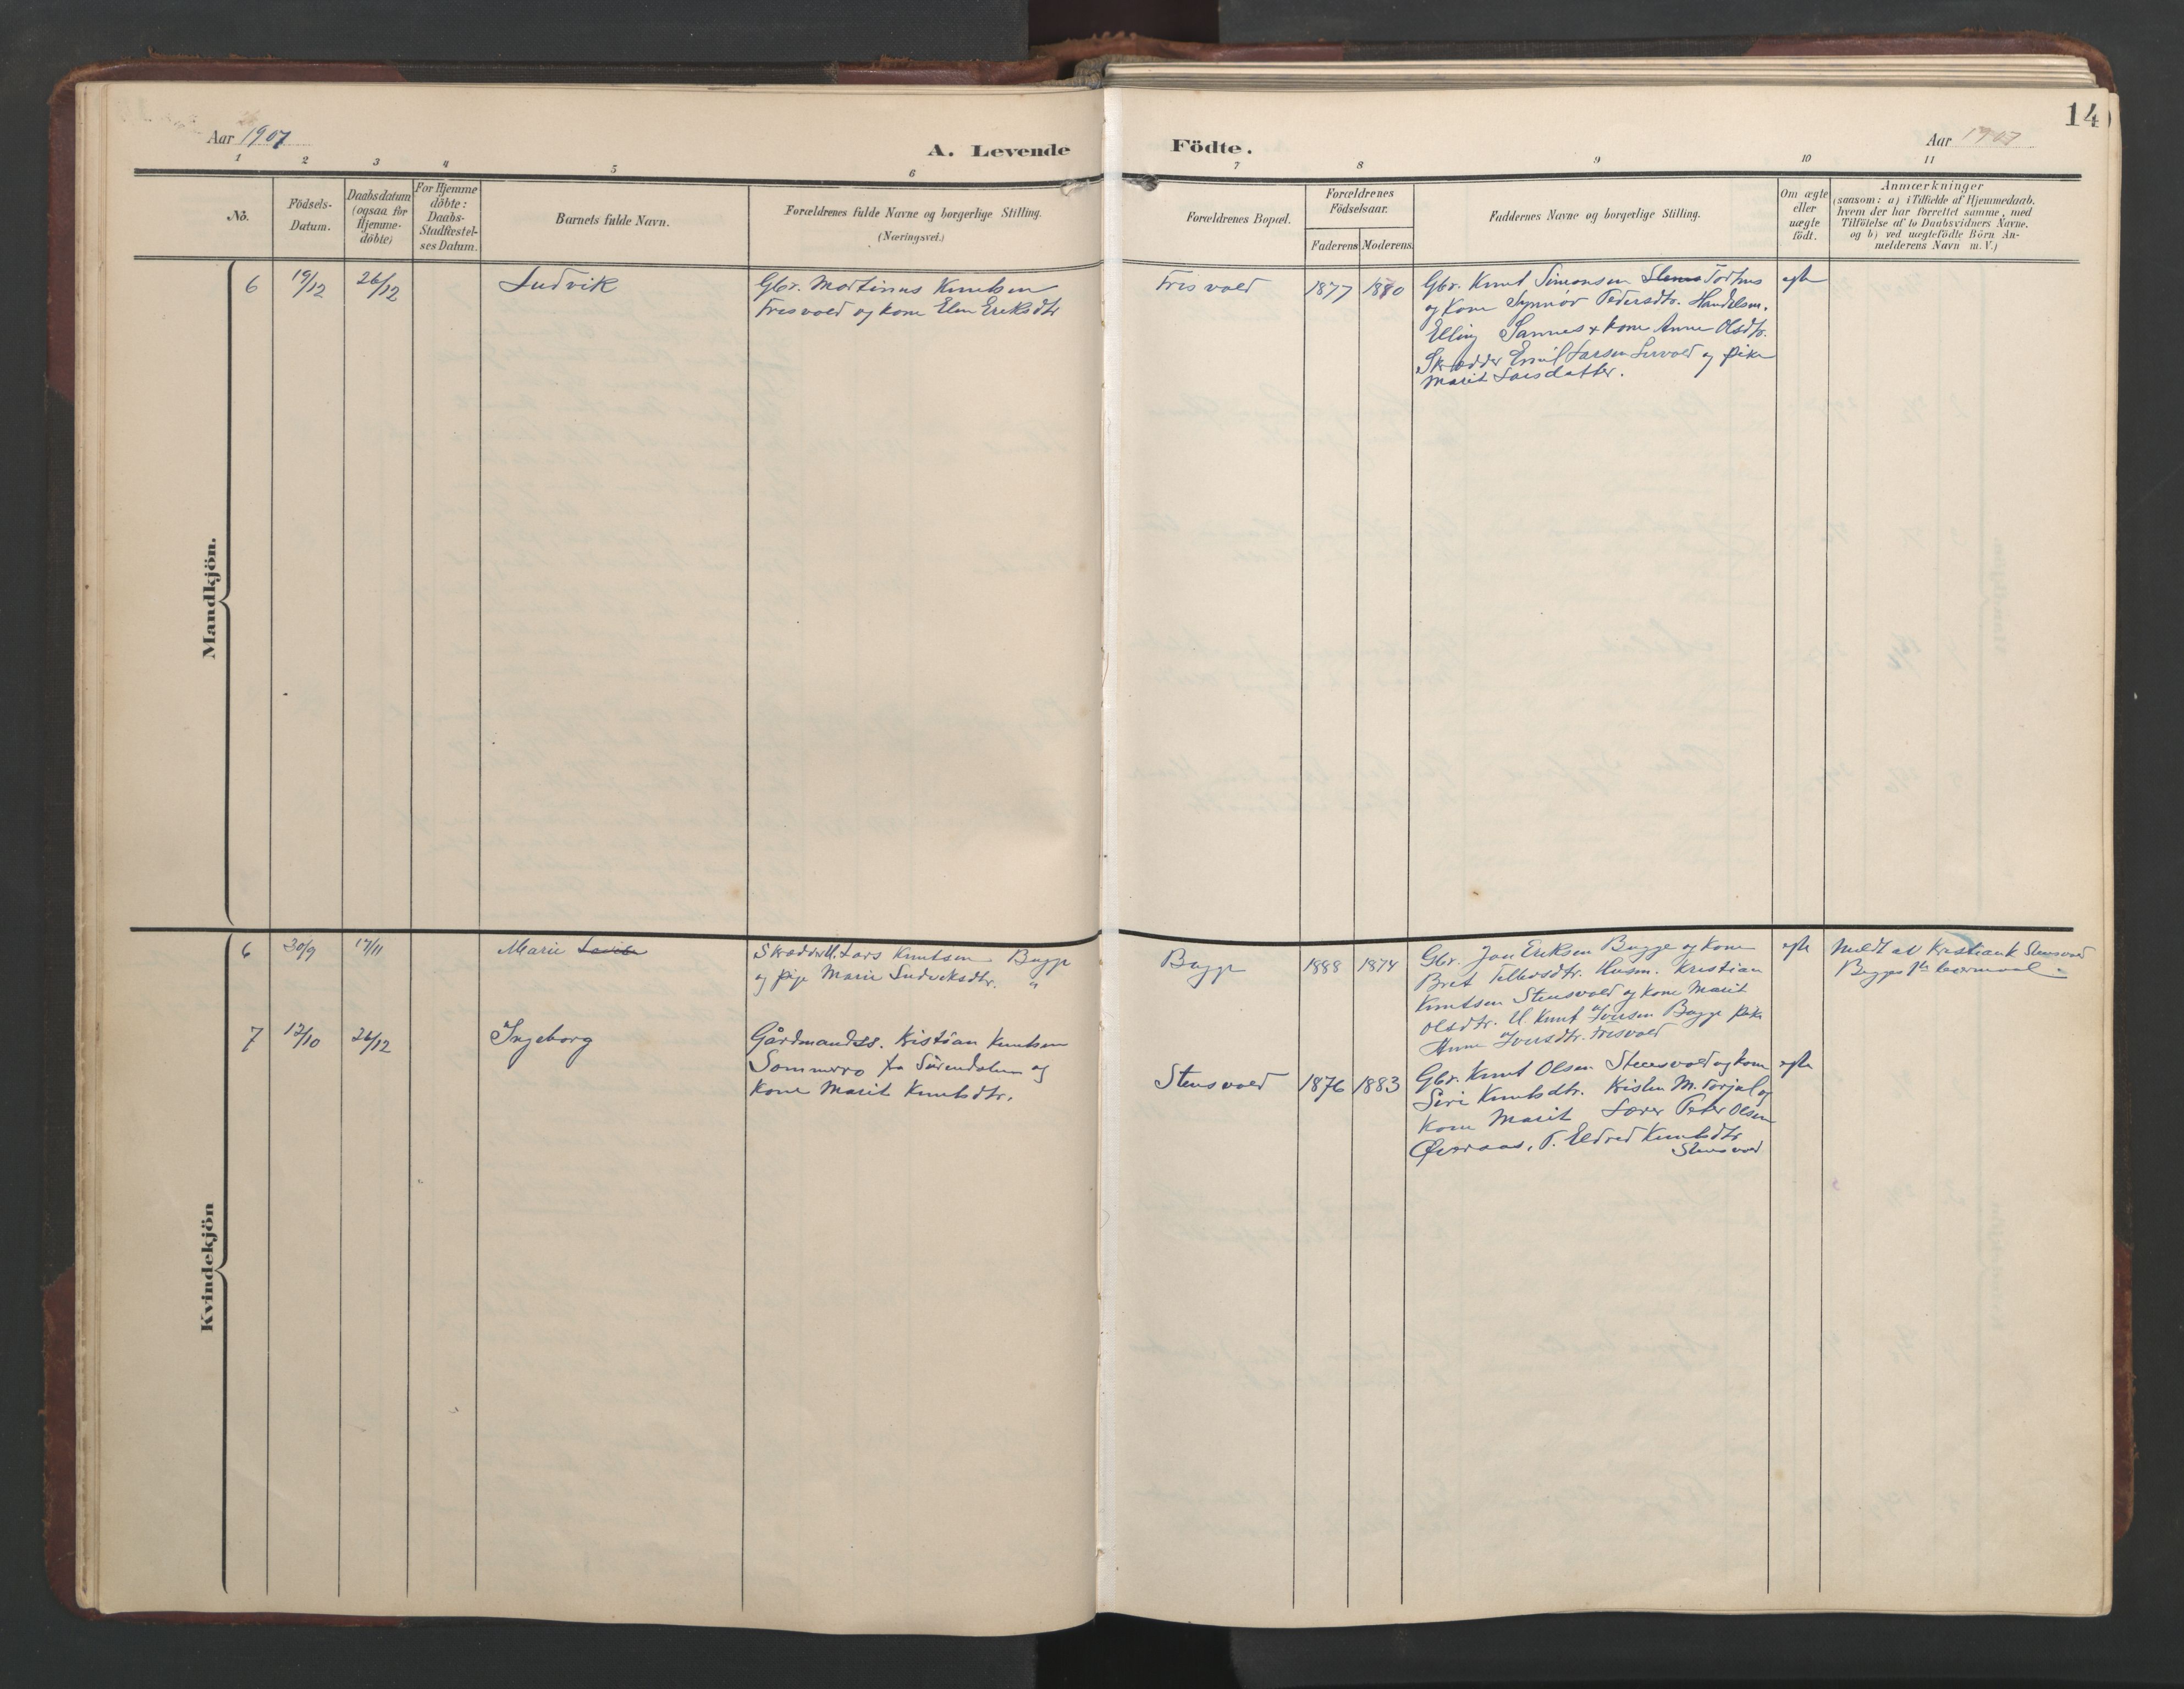 14
Aar 1907
A. Levende Födte.
Aar 1907
1 2 3 4 5 6 7 8 9 10 11
No.
Födsels-
Datum.
Daabsdatum
(ogsaa for
Hjemme-
döbte)
For Hjemme
döbte:
Daabs-
Stadfæstel-
ses Datum.
Barnets fulde Navn.
Forældrenes fulde Navne og borgerlige Stilling.
(Næringsvei.)
Forældrenes Bopæl.
Forældrenes
Födselsaar.
Faderens
Moderens
Faddernes Navne og borgerlige Stilling.
Om ægte
eller
uægte
födt.
Anmærkninger
(saasom: a) i Tilfælde af Hjemmedaab,
hvem der har forrettet samme, med
Tilföielse af to Daabsvidners Navne.
og b) ved uægtefödte Börn An-
melderens Navn m. V.)
Mandkjön.
6 19/12 26/12 Ludvik
Gbr. Martinus Knutsen
Frisvold og kone Elen Eriksdtr
Frisvold 1877 1880
Gbr. Knut Simonsen Torhus
og Kone Synnør Pedersdtr. Handelsm.
Elling Sannes & kone Anne Olsdtr.
Skrædder Emil Larsen Lervold og pike
Marit Larsdatter.
egte
Kvindekjön
6 30/9 17/11 Marie
Skrædder U. Lars Knutsen Bugge
og pige Marie Ludviksdtr. "
Bugge 1888 1874
Gbr. Jon Eriksen Bugge og Kone
Bret Tellefsdtr. Husm. Kristian
Knutsen Stensvold og kone Marit
Olsdtr. U. Knut Iversen Bugge pike
Anne Iversdtr. Frisvold
egte
Meldt av Kristian K Stensvold
Bugges 1te leiermaal
7 12/10 26/12 Ingeborg
Gårdmandss. Kistian Knutsen
Sommerro fra Surendalen og
Kone Marit Knutsdtr.
Stensvold 1876 1883
Gbr. Knut Olsen Steensvold og kone
Siri Knutsdtr. Kristen M. Torjul og
Kone Marit Lærer Peter Olsen
Øveraas, P. Eldrid Knutsdtr
Stensvold
egte